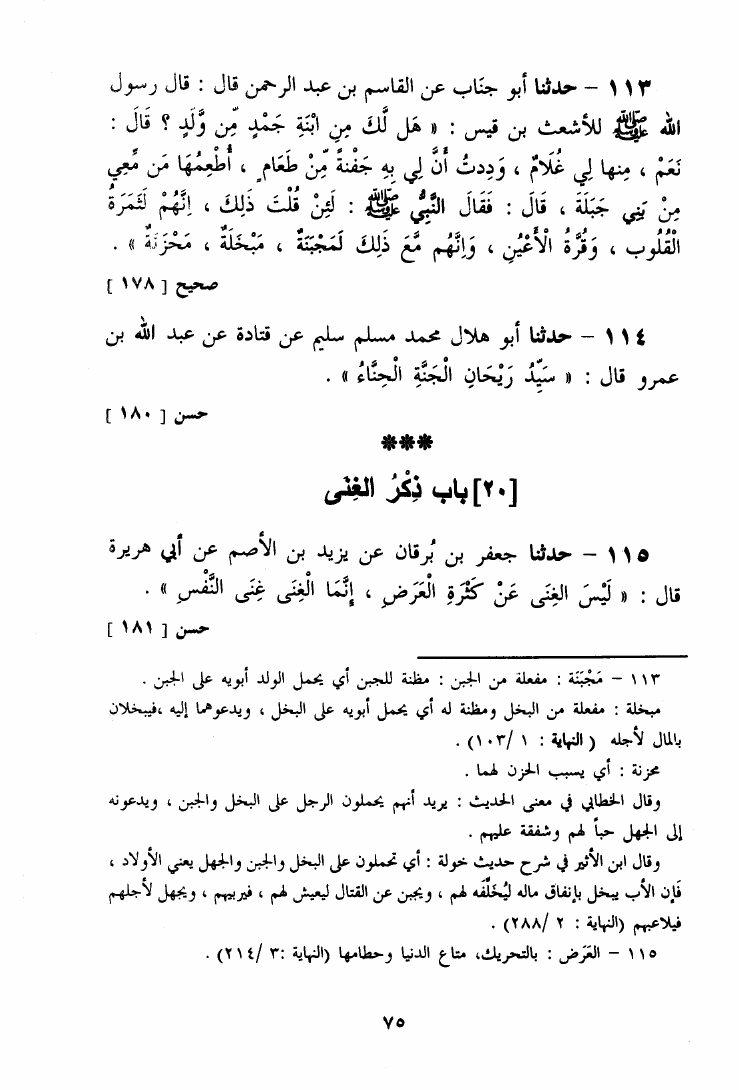 ١١٣ – حدثنا أبو جنَاب عن القاسم بن عبد الرحمن قال : قال رسول
الله ﷺ للأشعث بن قيس : « هَل لَّكَ مِنِ ابْنَةِ جَمْدٍ مِّن وَّلَدٍ ؟ قَالَ :
نَعَمْ ، مِنها لِي غُلَامٌ ، وَدِدتُ أَنَّ لِي بِهِ جَفْنةً مِّنْ طَعَامٍ ، أُطْعِمُهَا مَن مَّعِي
مِنْ بَنِي جَبَلَةَ ، قَالَ : فَقَالَ النَّبِيُّ ﷺ : لَئِنْ قُلْتَ ذَلِكَ ، اِنَّهُمْ لَثَمَرَةُ
الْقُلُوب ، وَقُرَّةُ الْأَعْيُنِ ، وَاِنَّهُم مَّعَ ذَلِكَ لَمَجْبَنَةٌ ، مَبْخَلَةٌ ، مَحْزَنَةٌ » .
صحيح [ ١٧٨ ]
١١٤ – حدثنا أبو هلال محمد مسلم سليم عن قتادة عن عبد الله بن
عمرو قال : « سَيِّدُ رَيْحَانِ الْجَنَّةِ الْحِنَّاءُ » .
حسن [ ١٨٠ ]
***
[٢٠] باب ذِكْرُ الغِنَى
١١٥ – حدثنا جعفر بن بُرقان عن يزيد بن الأصم عن أبي هريرة
قال : « لَيْسَ الغِنَى عَنْ كَثْرَةِ الْعَرَضِ ، إِنَّمَا الْغِنَى غِنَى النَّفْسِ » .
حسن [ ١٨١ ]
١١٣ – مَجْبَنَة : مفعلة من الجبن : مظنة للجبن أي يحمل الولد أبويه على الجبن .
مبخلة : مفعلة من البخل ومظنة له أي يحمل أبويه على البخل ، ويدعوهما إليه ،فيبخلان
بالمال لأجله ( النهاية : ١ /١٠٣) .
محزنة : أي يسبب الحزن لهما .
وقال الخطابي في معنى الحديث : يريد أنهم يحملون الرجل على البخل والجبن ، ويدعونه
إلى الجهل حباً لهم وشفقة عليهم .
وقال ابن الأثير في شرح حديث خولة : أي تحملون على البخل والجبن والجهل يعني الأولاد ،
فَإِن الأب يبخل بإنفاق ماله لِيُخَلِّفَه لهم ، ويجبن عن القتال ليعيش لهم ، فيربيهم ، ويجهل لأجلهم
فيلاعبهم (النهاية : ٢ /٢٨٨) .
١١٥ – العَرَض : بالتحريك، متاع الدنيا وحطامها (النهاية :٣ /٢١٤) .
٧٥